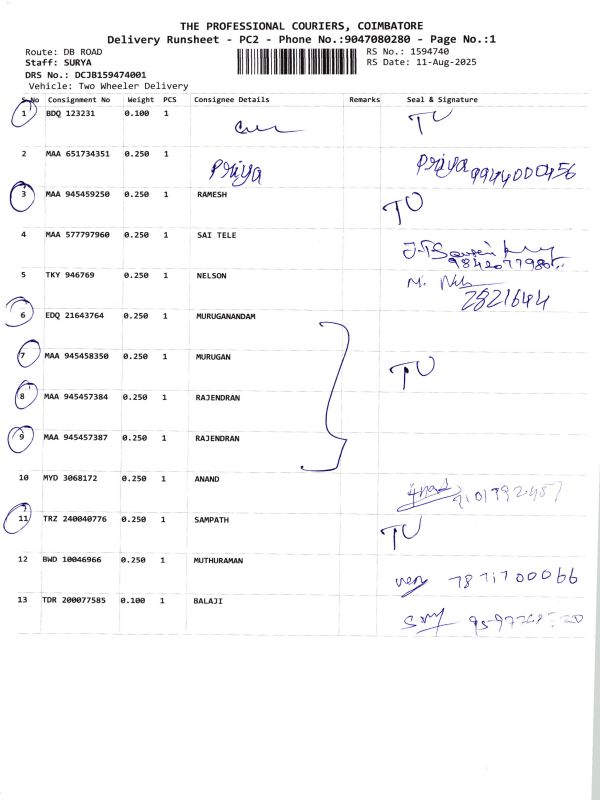 THE PROFESSIONAL COURIERS, COIMBATORE
Delivery Runsheet - PC2 - Phone No.:9047080280 - Page No.:1
Route: DB ROAD RS No.: 1594740
Staff: SURYA RS Date: 11-Aug-2025
DRS No.: DCJB159474001
Vehicle: Two Wheeler Delivery
S.No Consignment No Weight PCS Consignee Details Remarks Seal & Signature
1 BDQ 123231 0.100 1 TU
2 MAA 651734351 0.250 1 Priya Priya 9944000456
3 MAA 945459250 0.250 1 RAMESH TU
4 MAA 577797960 0.250 1 SAI TELE
5 TKY 946769 0.250 1 NELSON M.
2821644
6 EDQ 21643764 0.250 1 MURUGANANDAM
7 MAA 945458350 0.250 1 MURUGAN TU
8 MAA 945457384 0.250 1 RAJENDRAN
9 MAA 945457387 0.250 1 RAJENDRAN
10 MYD 3068172 0.250 1 ANAND Anand
11 TRZ 240040776 0.250 1 SAMPATH TU
12 BWD 10046966 0.250 1 MUTHURAMAN 7871700066
13 TDR 200077585 0.100 1 BALAJI